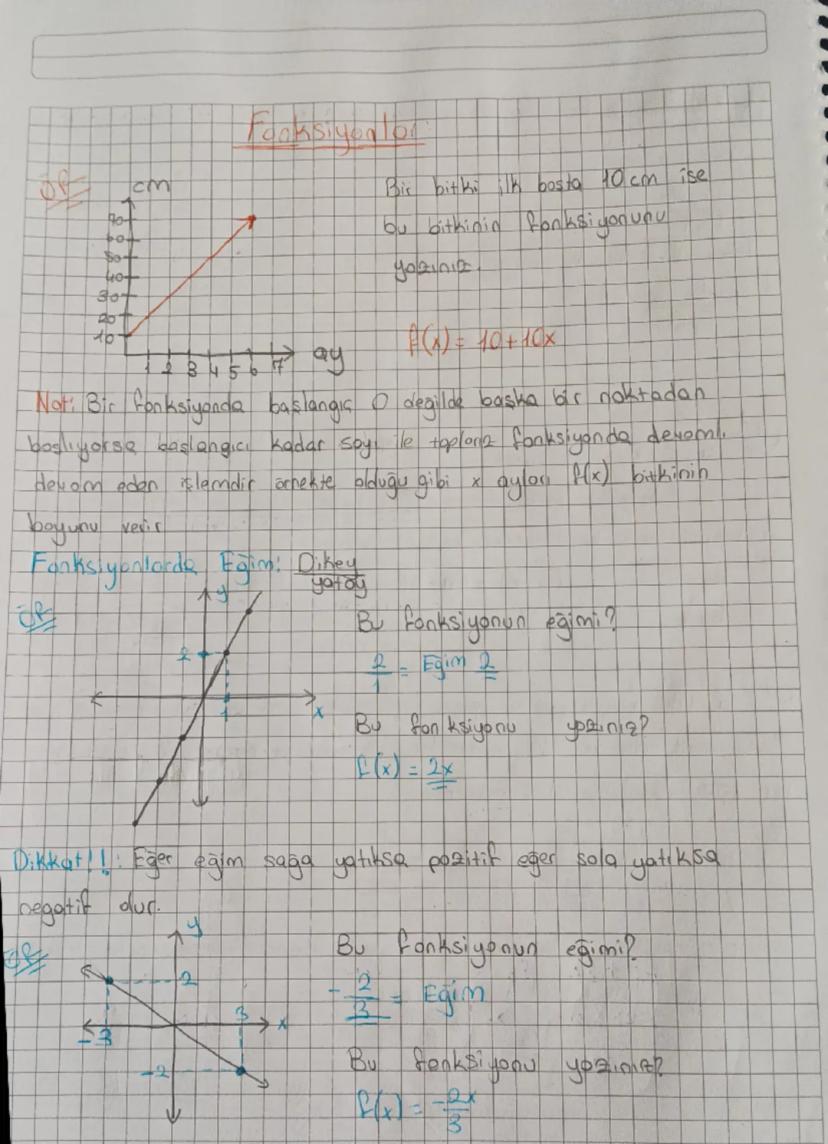 Fonksiyonlar
ÖR
cm
70
60
50
40
30
20
10
1 2 3 4 5 6 7 ay
Bir bitki ilk başta 10 cm ise
bu bitkinin fonksiyonunu
yazınız.
f(x) = 10+10x
Not: Bir fonksiyonda başlangıç 0 değilde başka bir noktadan
başlıyorsa başlangıcı kadar sayı ile toplanır fonksiyonda devamlı
devam eden işlemdir örnekte olduğu gibi x ayları f(x) bitkinin
boyunu verir
Fonksiyonlarda Eğim: Dikey/yatay
ÖR
y
2
1
x
Bu fonksiyonun eğimi?
2/1 = Eğim 2
Bu fonksiyonu yazınız?
f(x) = 2x
Dikkat!!: Eğer eğim sağa yatıksa pozitif eğer sola yatıksa
negatif dur.
ÖR
y
2
3
x
-3
-2
Bu fonksiyonun eğimi?
-2/3 = Eğim
Bu fonksiyonu yazınız?
f(x) = -2x/3